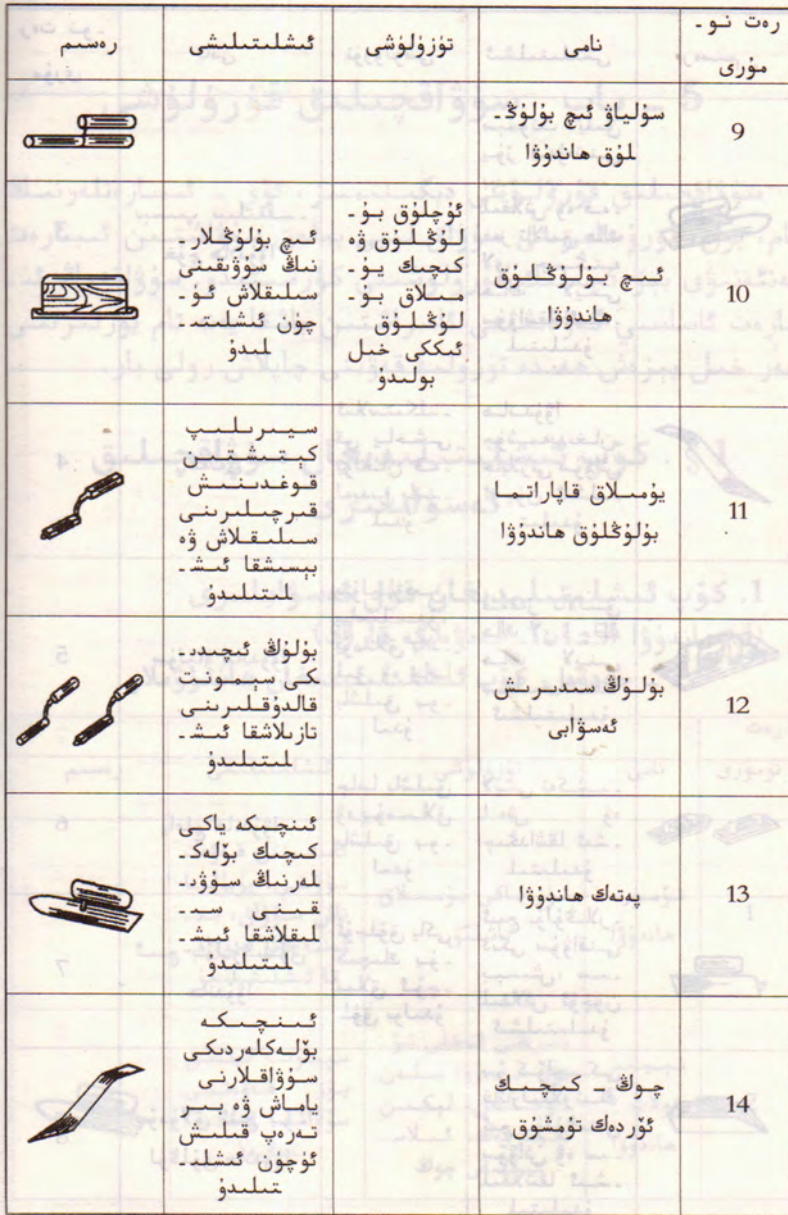 رەت نو-
مۇرى
نامى
تۈزۈلۈشى
ئىشلىتىلىشى
رەسىم
9
سۇلياۋ ئىچ بۇلۇڭ-
لۇق ھاندۇۋا
10
ئىچ بۇلۇڭلۇق
ھاندۇۋا
ئۈچلۈق بۇ-
لۇڭلۇق ۋە
كىچىك يۇ-
مىلاق بۇ-
لۇڭلۇق
ئىككى خىل
بولىدۇ
ئىچ بۇلۇڭلار-
نىڭ سۇۋۇقىنى
سىلىقلاش ئۈ-
چۈن ئىشلىتى-
لىدۇ
11
يۇمىلاق قاپاراتما
بۇلۇڭلۇق ھاندۇۋا
سىيرىلىپ
كېتىشتىن
قوغدىنىش
قىرچىلىرىنى
سىلىقلاش ۋە
بېسىشقا ئىش-
لىتىلىدۇ
12
بۇلۇڭ سىدىرىش
ئەسۋابى
بۇلۇڭ ئىچىدى-
كى سېمونت
قالدۇقلىرىنى
تازىلاشقا ئىش-
لىتىلىدۇ
13
پەتەك ھاندۇۋا
ئىنچىكە ياكى
كىچىك بۆلەك-
لەرنىڭ سۇۋى-
قىنى سى-
لىقلاشقا ئىش-
لىتىلىدۇ
14
چوڭ - كىچىك
ئۆردەك تۇمشۇق
ئىنچىكە
بۆلەكلەردىكى
سۇۋاقلارنى
ياماش ۋە بىر
تەرەپ قىلىش
ئۈچۈن ئىشلى-
تىلىدۇ